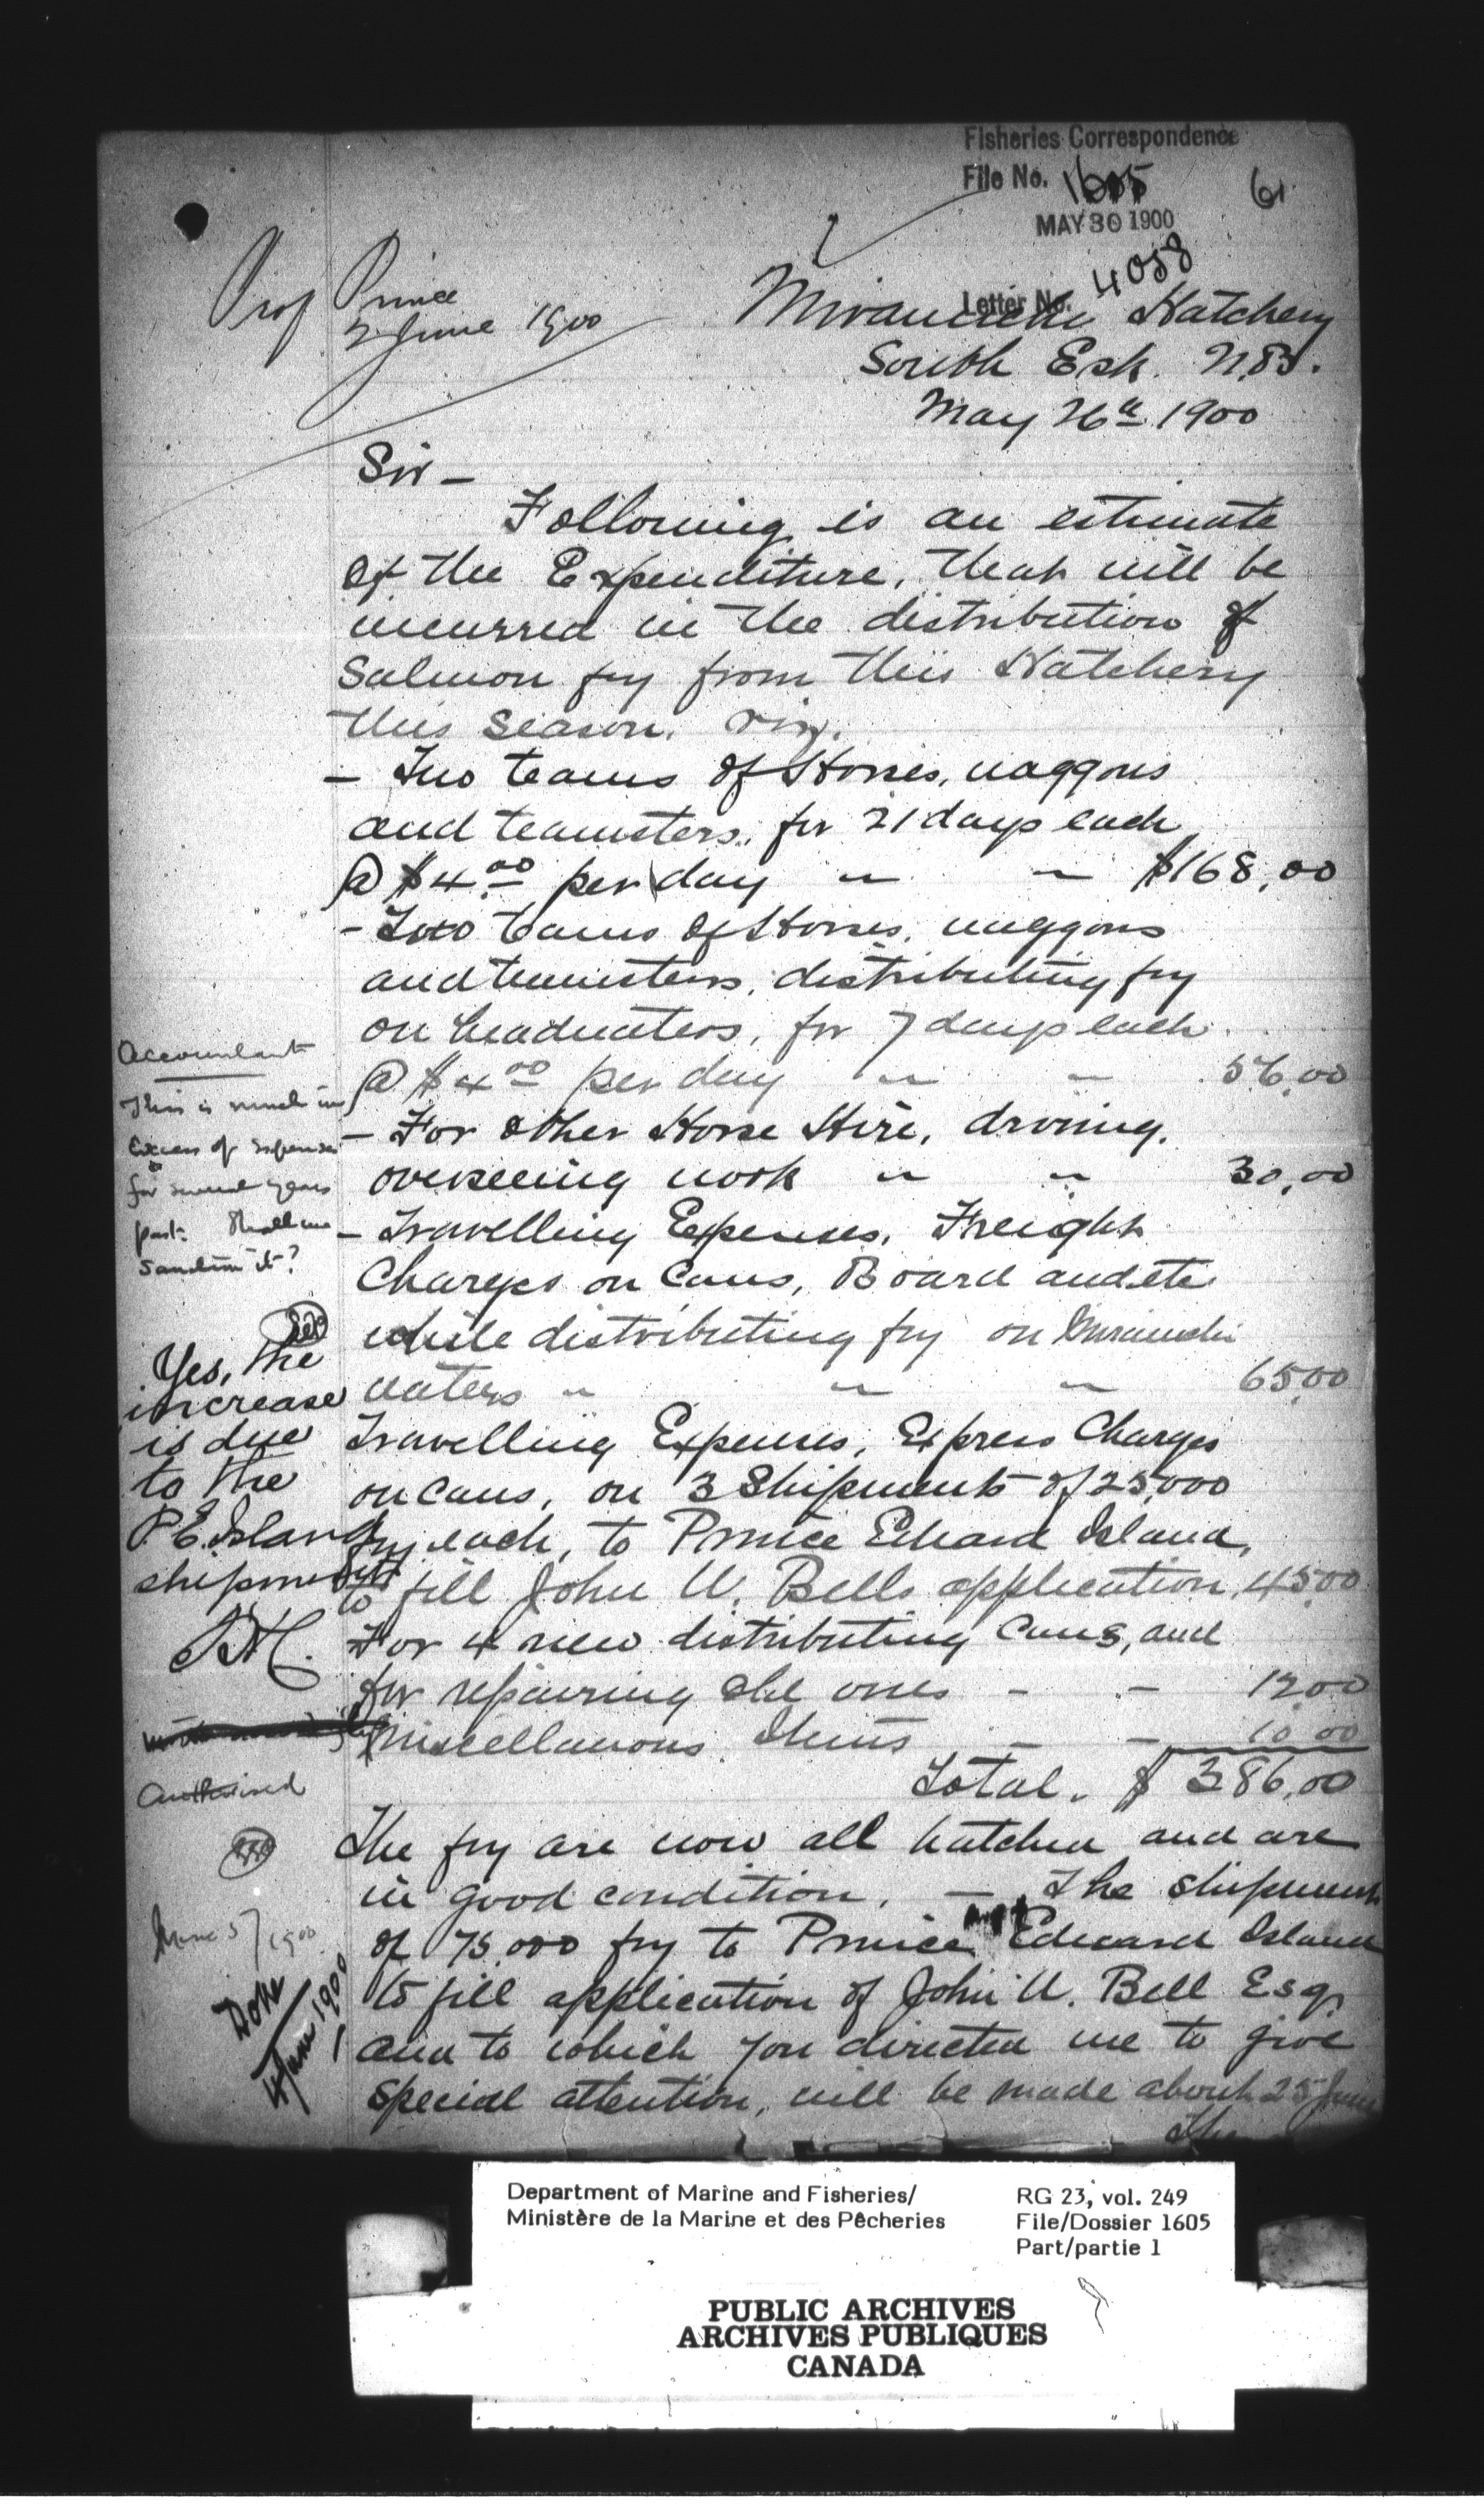 Fisheries Correspondence
File No. 1605
61
MAY 30 1900
4058
Letter No.
Prof Prince
2 June 1900
Miramichi Hatchery
South Esk. N.B.
May 26th 1900
Sir -
Following is an estimate
of the Expenditure, that will be
incurred in the distribution of
Salmon fry from this Hatchery
this Season. viz.
- Two teams of Horses, waggons
and teamsters, for 21 days each
@ $4.00 per day " " $168.00
- Two teams of Horses, waggons
and teamsters, distributing fry
on headwaters, for 7 days each
@ $4.00 per day " " 56.00
- For other Horse Hire, driving,
overseeing work " " 30.00
- Travelling Expenses, Freight
Charges on Cans, Board and etc
while distributing fry on Miramichi
waters " " " 65.00
Travelling Expenses, Express Charges
on Cans, on 3 Shipments of 25,000
fry each, to Prince Edward Island,
to fill John W. Bells application, 45.00
For 4 new distributing Cans, and
for repairing old ones - - 12.00
Miscellanous Items - - 10.00
Total. $ 386.00
The fry are now all hatched and are
in good condition. - The shipment
of 75,000 fry to Prince Edward Island
to fill application of John W. Bell Esq.
and to which you directed me to give
special attention, will be made about 25 June
The
Accountant
This is much in
excess of expenses
for several years
past. Shall we
sanction it?
Yes, the
increase
is due
to the
P.E. Island
shipments
Authorised
June 5/1900
Done
4/June 1900
Department of Marine and Fisheries/
Ministère de la Marine et des Pêcheries
RG 23, vol. 249
File/Dossier 1605
Part/partie 1
PUBLIC ARCHIVES
ARCHIVES PUBLIQUES
CANADA